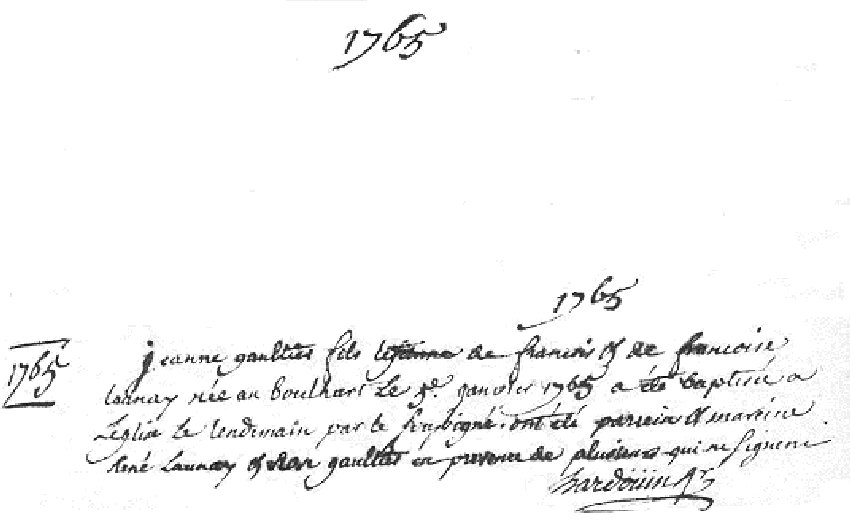 1765
1765
1765
jeanne gaultier fils de francois & de francoise
launay née au Boulhart Le 5e. janvier 1765 a été baptisée a
Leglise Le lendemain par le soussigné. ont été parrein & marrine
René Launay & gaultier en presence de plusieurs qui ne signent.
hardoüin